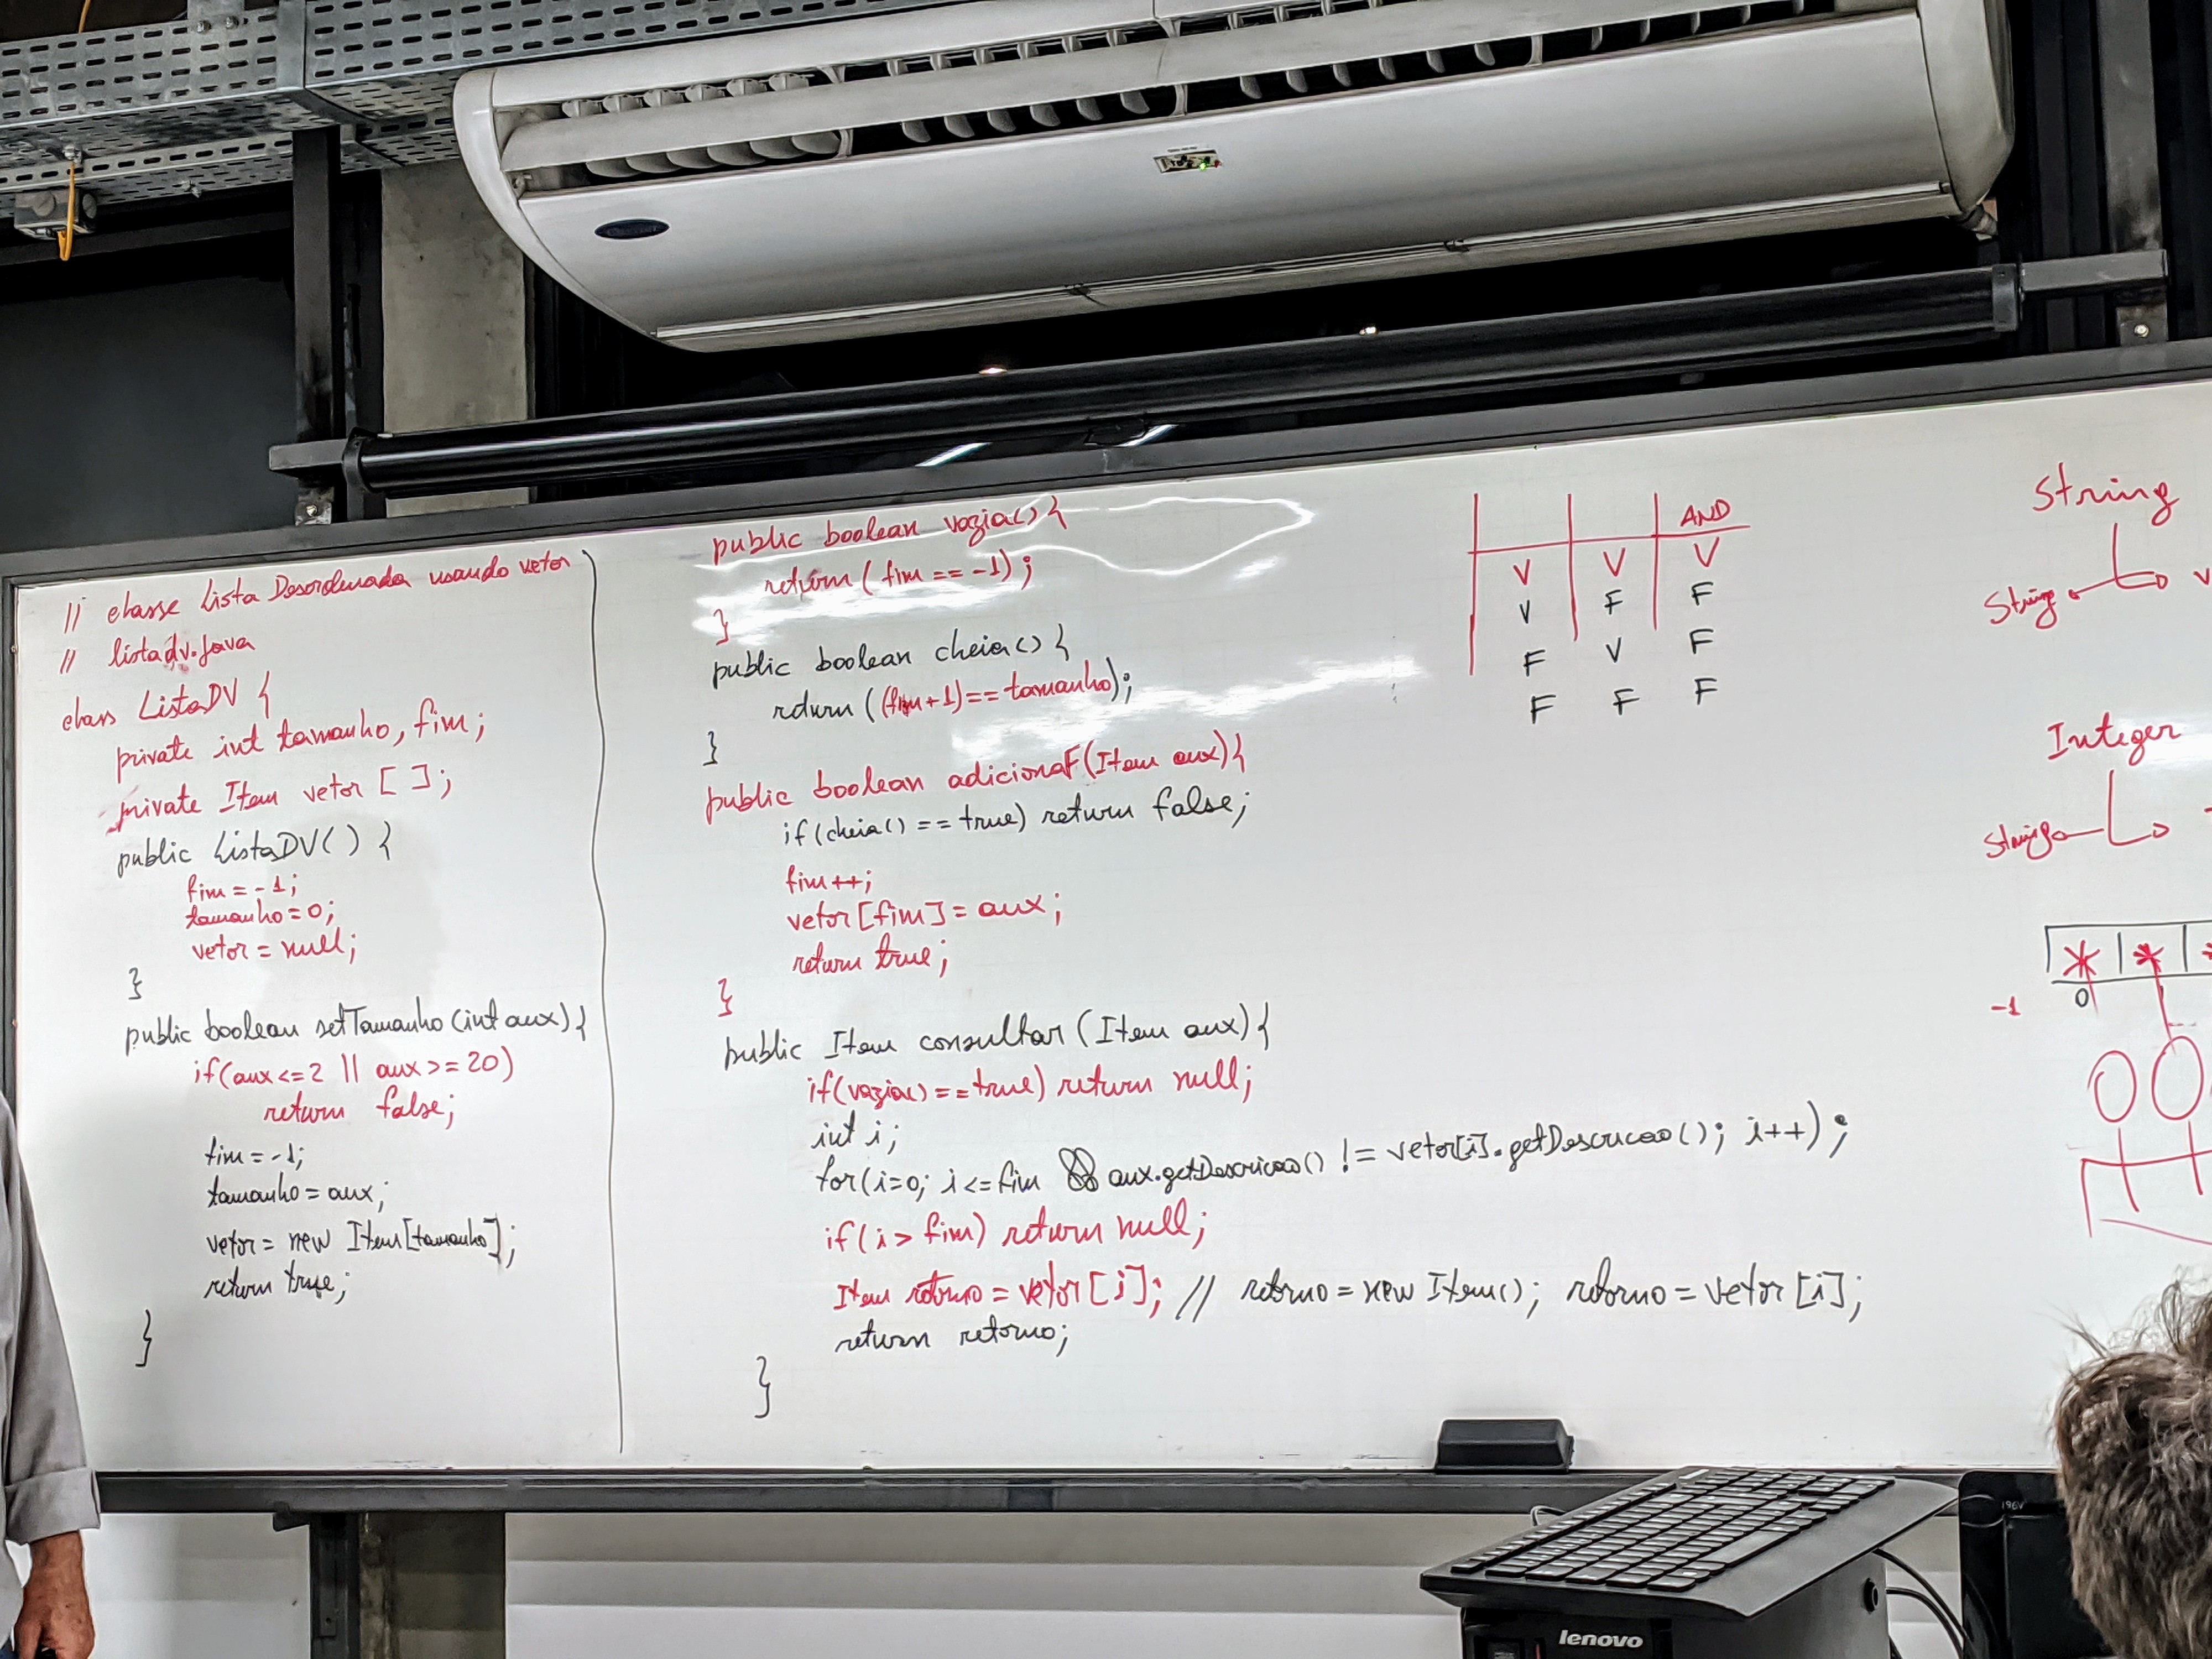 // classe Lista Desordenada usando vetor
// listadv.java
class ListaDV {
private int tamanho, fim;
private Item vetor [ ];
public ListaDV() {
fim = -1;
tamanho = 0;
vetor = null;
}
public boolean setTamanho (int aux) {
if(aux <= 2 || aux >= 20)
return false;
fim = -1;
tamanho = aux;
vetor = new Item[tamanho];
return true;
}
public boolean vazia() {
return ( fim == -1);
}
public boolean cheia() {
return ((fim+1) == tamanho);
}
public boolean adicionaF(Item aux){
if(cheia() == true) return false;
fim++;
vetor[fim] = aux;
return true;
}
public Item consultar (Item aux) {
if(vazia() == true) return null;
int i;
for(i=0; i <= fim && aux.getDescricao() != vetor[i].getDescricao(); i++);
if(i > fim) return null;
Item retorno = vetor [i]; // retorno = new Item(); retorno = vetor [i];
return retorno;
}
AND
V V V
V F F
F V F
F F F
String
String
Integer
String
-1
0
lenovo
196V